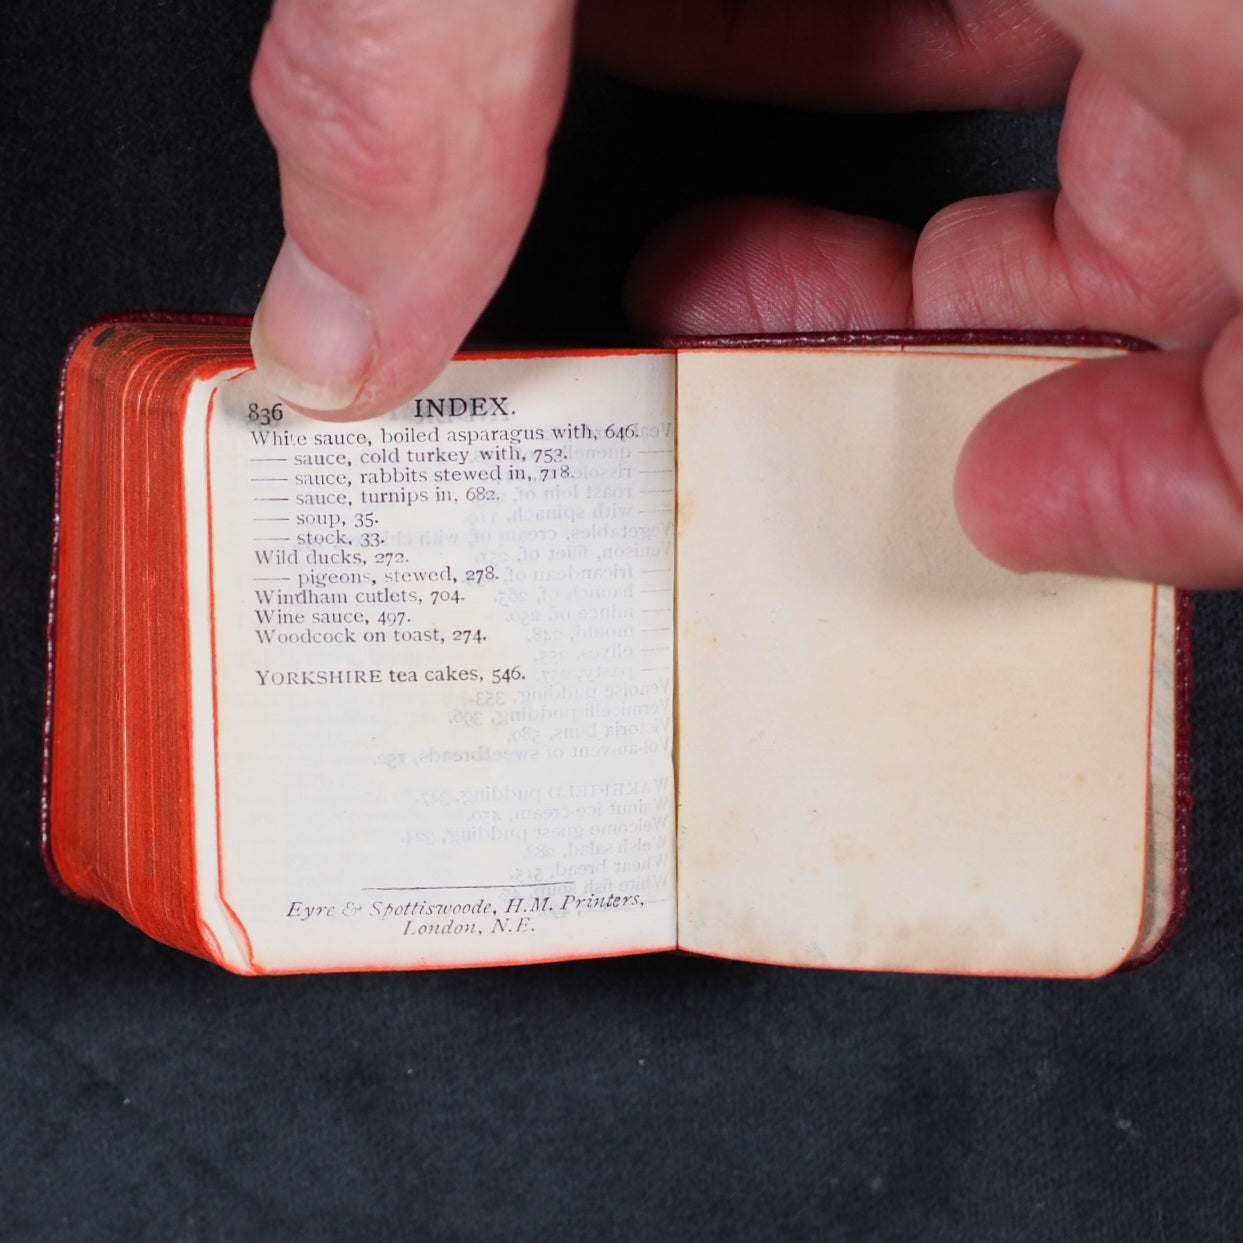 836 INDEX.
White sauce, boiled asparagus with, 646.
—— sauce, cold turkey with, 753.
—— sauce, rabbits stewed in, 718.
—— sauce, turnips in, 682.
—— soup, 35.
—— stock, 33.
Wild ducks, 272.
—— pigeons, stewed, 278.
Windham cutlets, 704.
Wine sauce, 497.
Woodcock on toast, 274.
YORKSHIRE tea cakes, 546.
Eyre & Spottiswoode, H.M. Printers,
London, N.E.